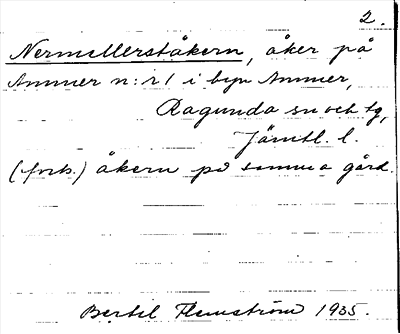 2.
Nermellerståkern, åker på
Ammer n:r 1 i byn Ammer,
Ragunda sn och tg,
Jämtl. l.
(forts.) åkern på samma gård.
Bertil Flemström 1935.